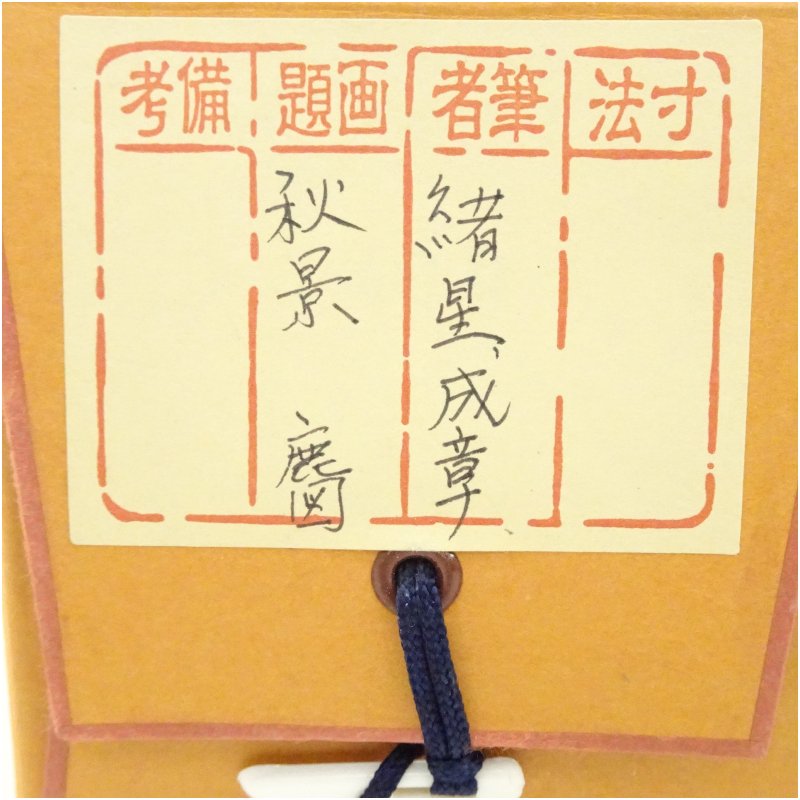 寸法
筆者
緒星、成章、
画題
秋景 鹿図
備考